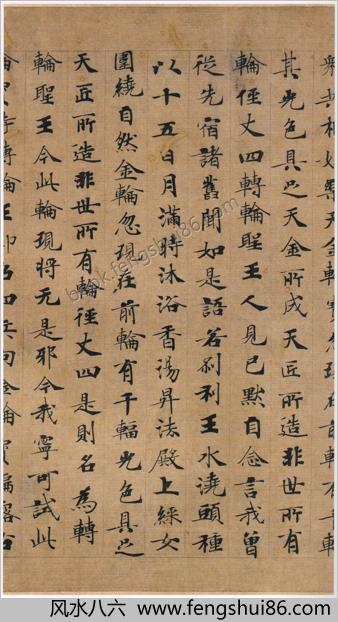 其光色具足天金所成天匠所造非世所有
輪徑丈四轉輪聖王人見已默自念言我曾
從先宿諸舊聞如是語若刹利王水澆頭種
以十五日月滿時沐浴香湯昇法殿上綵女
圍繞自然金輪忽現在前輪有千輻光色具足
天匠所造非世所有輪徑丈四是則名為轉
輪聖王今此輪現將无是邪今我寧可試此
book.fengshui86.com
风水八六 www.fengshui86.com